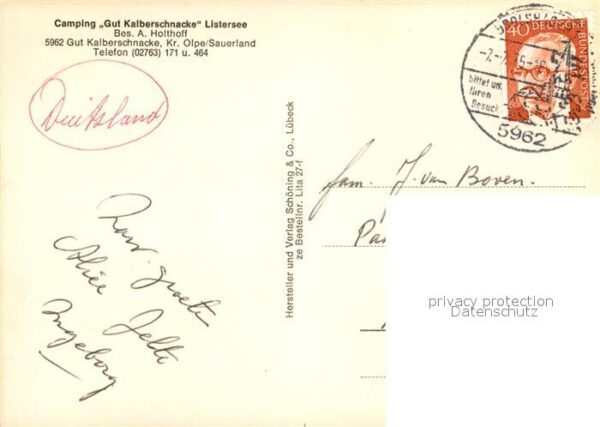 Camping „Gut Kalberschnacke" Listersee
Bes. A. Holthoff
5962 Gut Kalberschnacke, Kr. Olpe/Sauerland
Telefon (02763) 171 u. 464
Deutsland
Hart. groeten
Alice Jelte
Ingeborg
Hersteller und Verlag Schöning & Co., Lübeck
ze Bestellnr. Lita 27-f
40
DEUTSCHE BUNDESPOST
-7.-7.75-16
bittet um
Ihren
Besuch
5962
Fam. J. van Boven.
privacy protection
Datenschutz